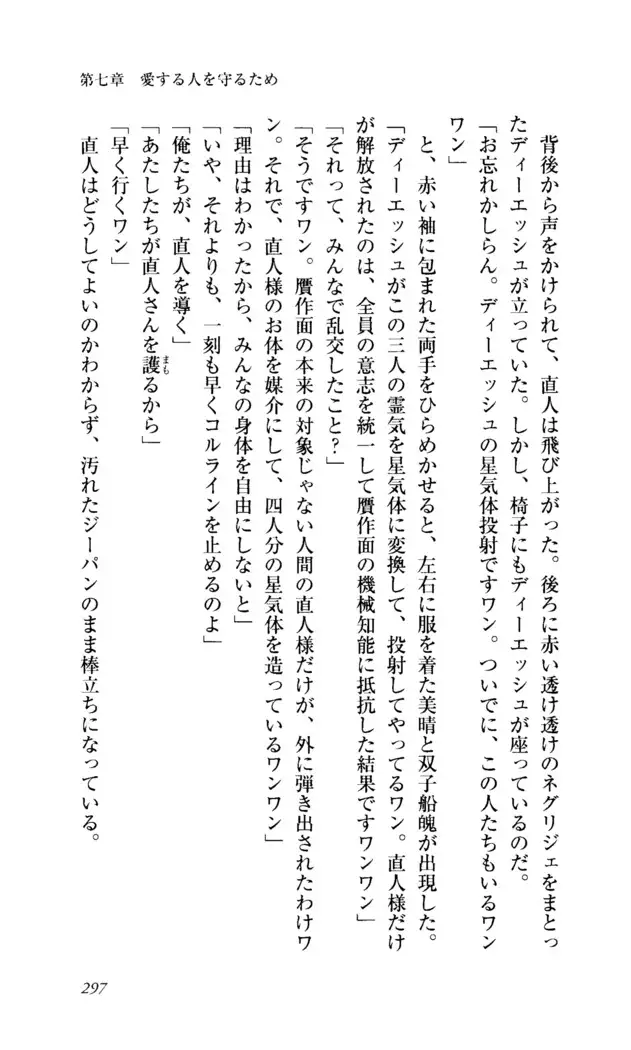 第七章　愛する人を守るため
　背後から声をかけられて、直人は飛び上がった。後ろに赤い透け透けのネグリジェをまとっ
たディーエッシュが立っていた。しかし、椅子にもディーエッシュが座っているのだ。
「お忘れかしらん。ディーエッシュの星気体投射ですワン。ついでに、この人たちもいるワン
ワン」
　と、赤い袖に包まれた両手をひらめかせると、左右に服を着た美晴と双子船魄が出現した。
「ディーエッシュがこの三人の霊気を星気体に変換して、投射してやってるワン。直人様だけ
が解放されたのは、全員の意志を統一して贋作面の機械知能に抵抗した結果ですワンワン」
「それって、みんなで乱交したこと？」
「そうですワン。贋作面の本来の対象じゃない人間の直人様だけが、外に弾き出されたわけワ
ン。それで、直人様のお体を媒介にして、四人分の星気体を造っているワンワン」
「理由はわかったから、みんなの身体を自由にしないと」
「いや、それよりも、一刻も早くコルラインを止めるのよ」
「俺たちが、直人を導く」
「あたしたちが直人さんを護るから」
まも
「早く行くワン」
　直人はどうしてよいのかわからず、汚れたジーパンのまま棒立ちになっている。
297